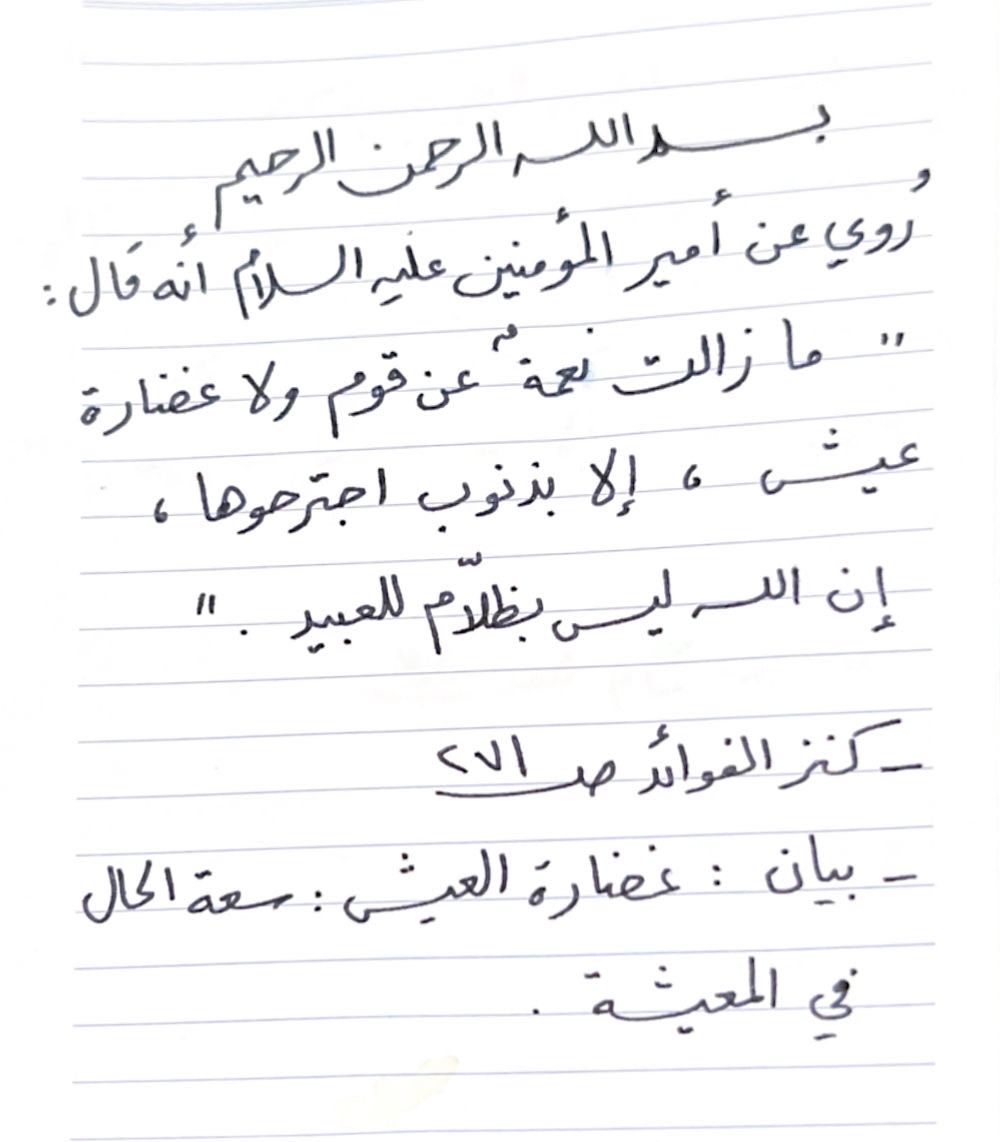 بسم الله الرحمن الرحيم
رُوي عن أمير المؤمنين عليه السلام أنه قال :
" ما زالت نعمةٌ عن قوم ولا غضارة
عيش ، إلا بذنوب اجترحوها ،
إن الله ليس بظلّام للعبيد . "
- كنز الفوائد صـ ٢٧١
- بيان : غضارة العيش : سعة الحال
في المعيشة .